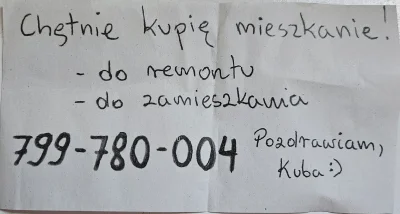 Chętnie kupię mieszkanie!
- do remontu
- do zamieszkania
799-780-004 Pozdrawiam,
Kuba:)